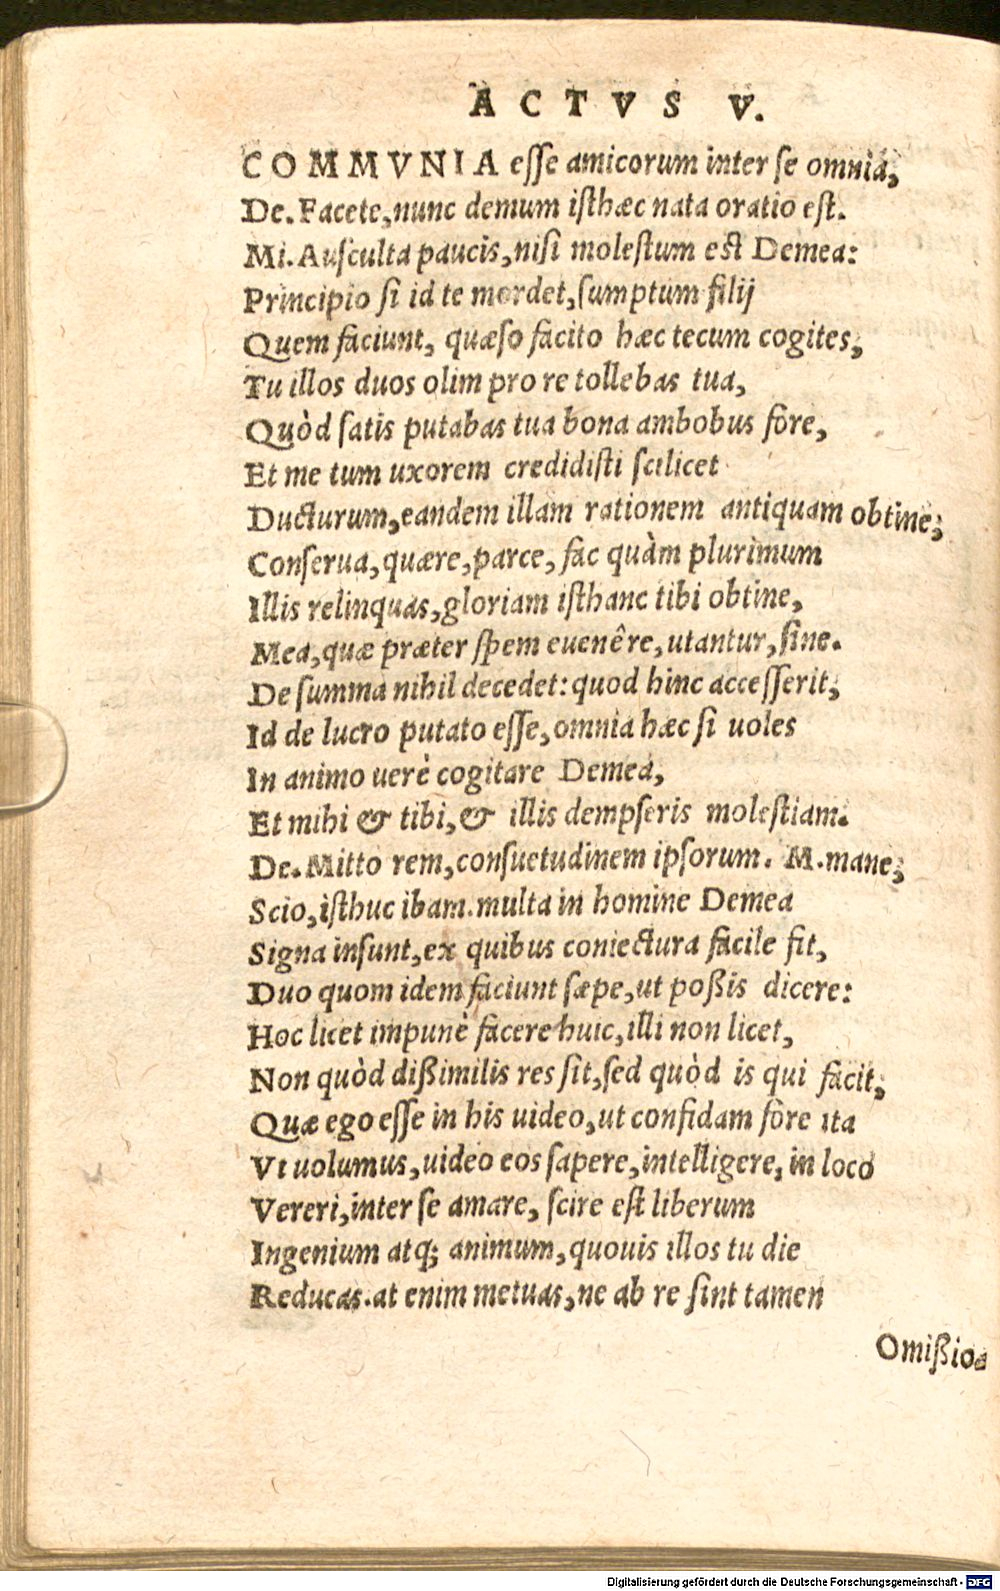 ACTVS V.
COMMVNIA esse amicorum inter se omnia,
De. Facete, nunc demum isthæc nata oratio est.
Mi. Ausculta paucis, nisi molestum est Demea:
Principio si id te mordet, sumptum filij
Quem faciunt, quæso facito hæc tecum cogites,
Tu illos duos olim pro re tollebas tua,
Quòd satis putabas tua bona ambobus fore,
Et me tum uxorem credidisti scilicet
Ducturum, eandem illam rationem antiquam obtine,
Conserua, quære, parce, fac quàm plurimum
Illis relinquas, gloriam isthanc tibi obtine,
Mea, quæ præter spem euenêre, utantur, sine.
De summa nihil decedet: quod hinc accesserit,
Id de lucro putato esse, omnia hæc si uoles
In animo uerè cogitare Demea,
Et mihi & tibi, & illis dempseris molestiam.
De. Mitto rem, consuetudinem ipsorum. M. mane,
Scio, isthuc ibam. multa in homine Demea
Signa insunt, ex quibus coniectura facile fit,
Duo quom idem faciunt sæpe, ut poßis dicere:
Hoc licet impunè facere huic, illi non licet,
Non quòd dißimilis res sit, sed quòd is qui facit,
Quæ ego esse in his uideo, ut confidam fore ita
Vt uolumus, uideo eos sapere, intelligere, in loco
Vereri, inter se amare, scire est liberum
Ingenium atq; animum, quouis illos tu die
Reducas. at enim metuas, ne ab re sint tamen
Omißio-
Digitalisierung gefördert durch die Deutsche Forschungsgemeinschaft - DFG